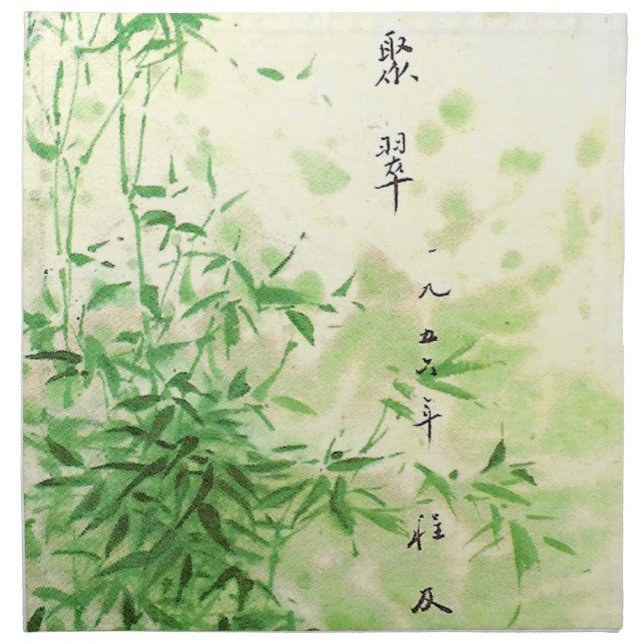 聚翠
一九五六年 程及